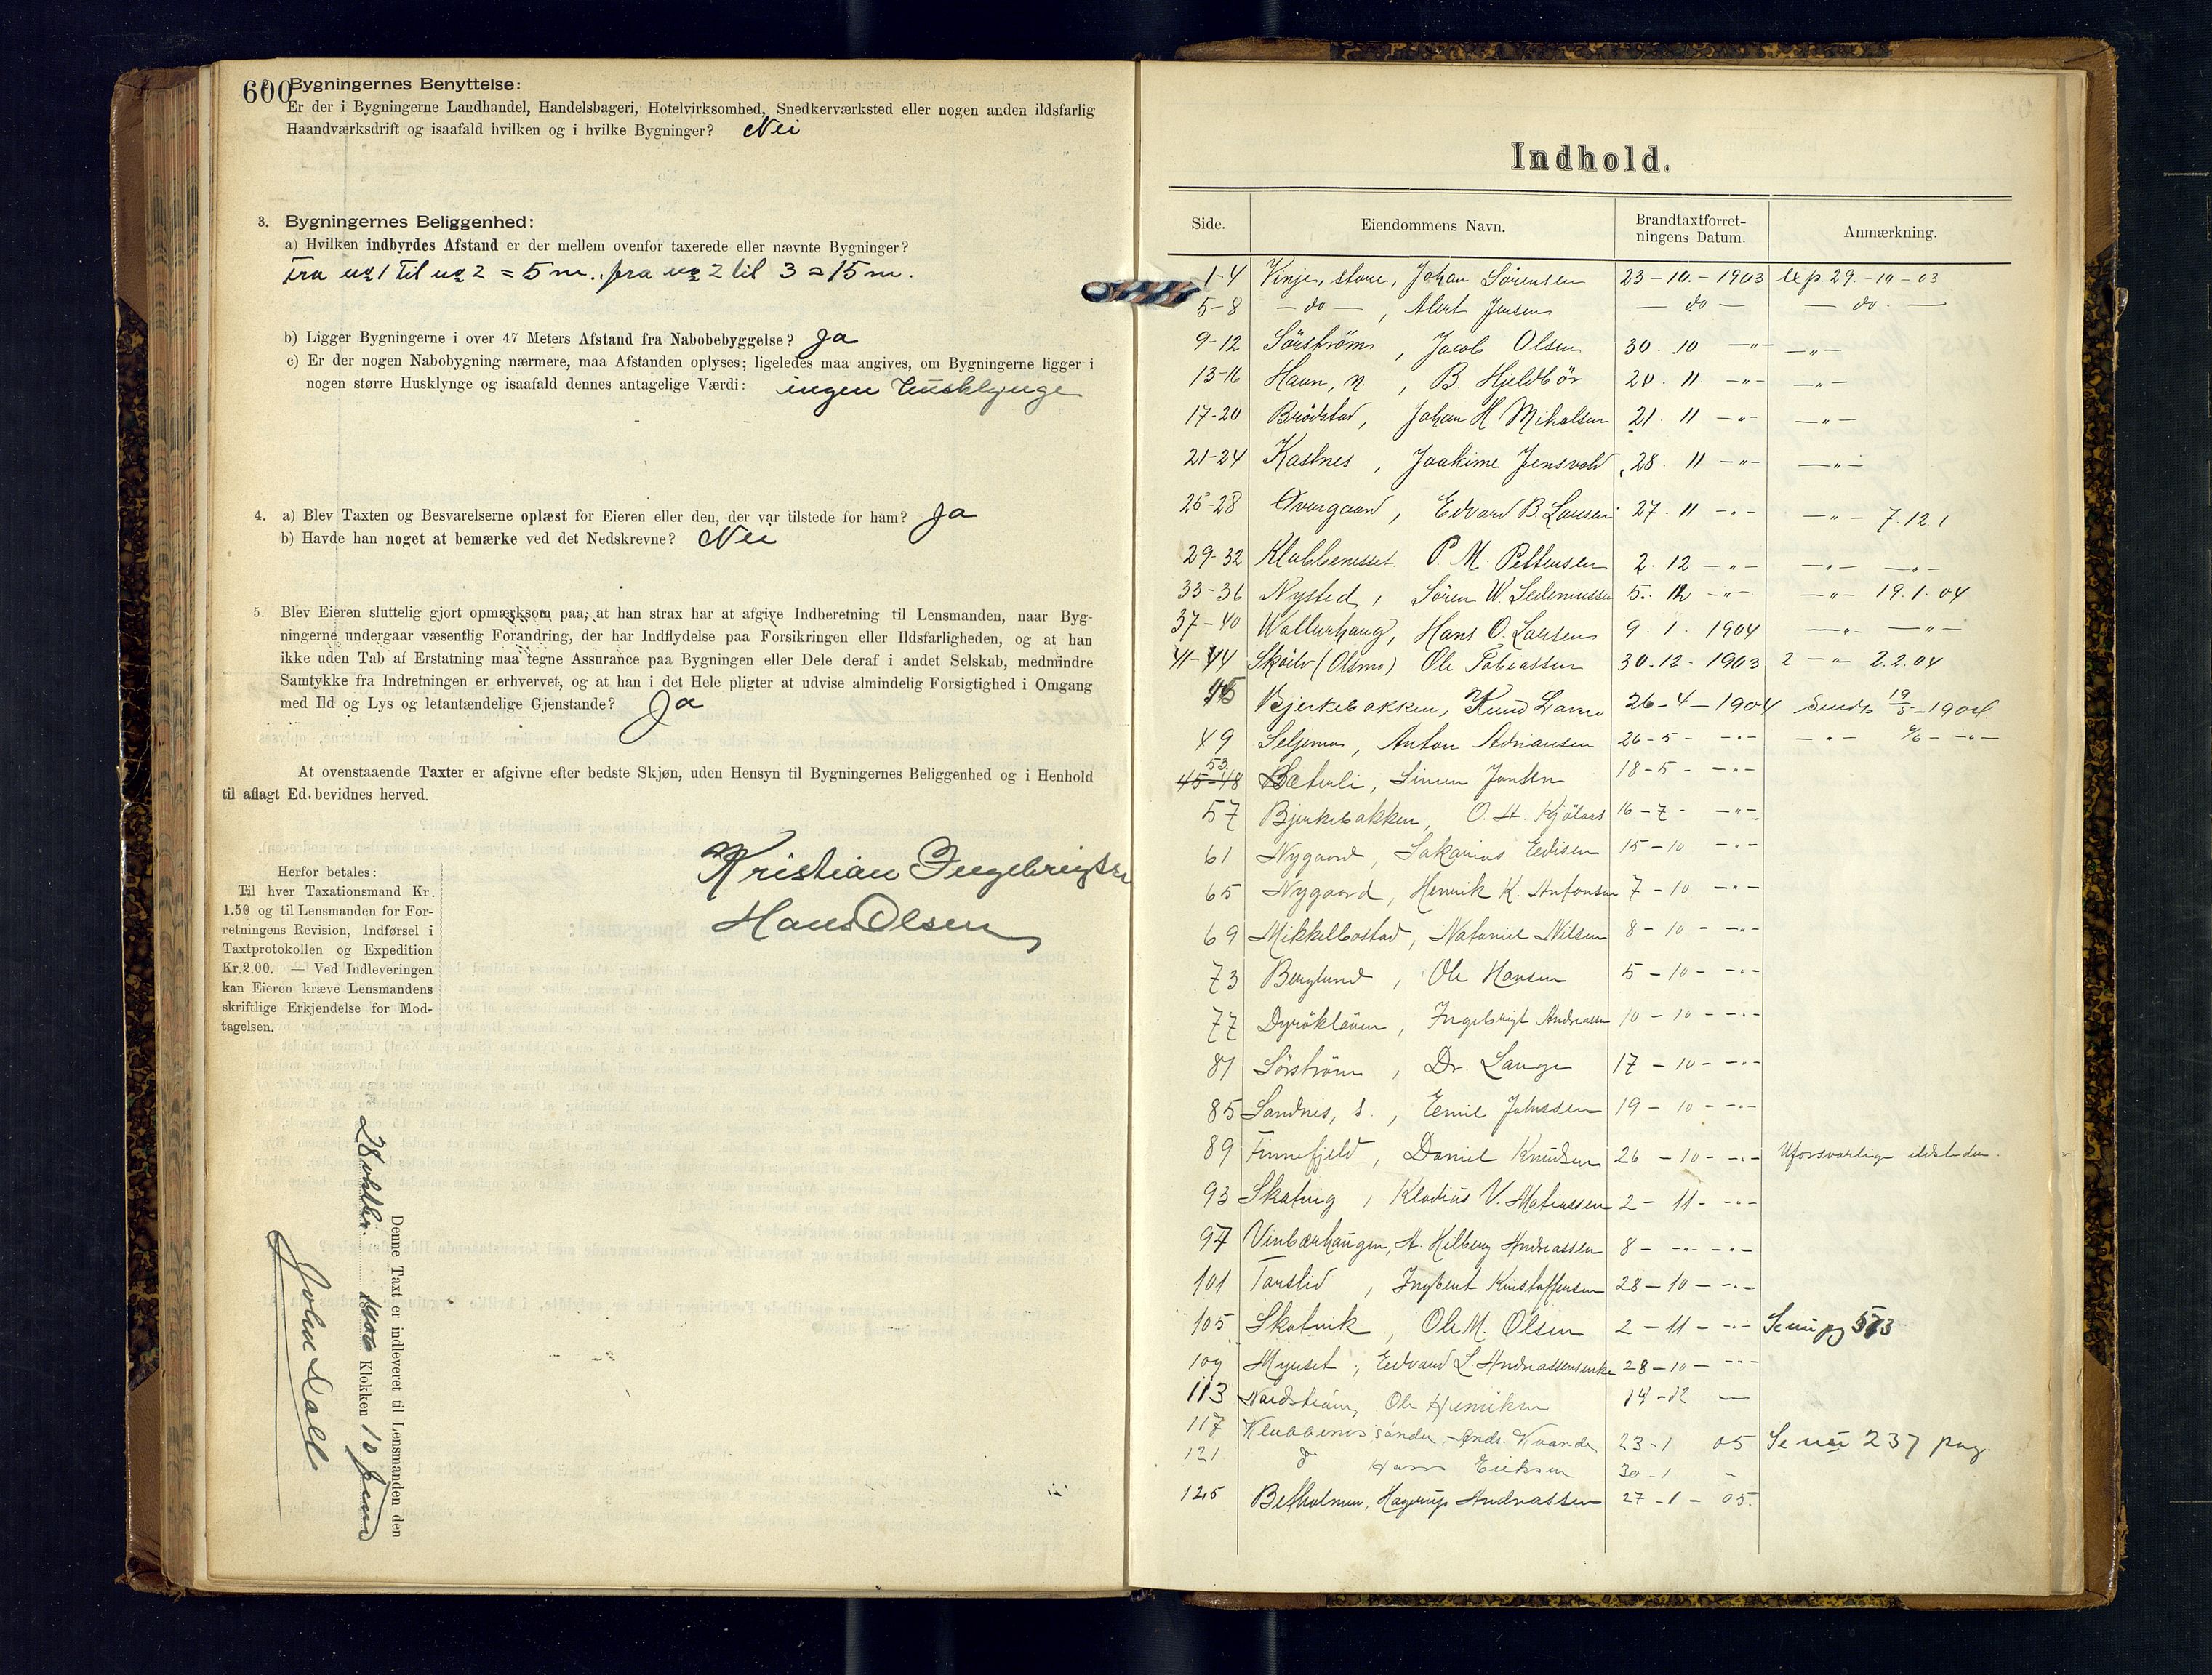 600
Bygningernes Benyttelse:
Er der i Bygningerne Landhandel, Handelsbageri, Hotelvirksomhed, Snedkerværksted eller nogen anden ildsfarlig
Haandværksdrift og isaafald hvilken og i hvilke Bygninger? Nei
3. Bygningernes Beliggenhed:
a) Hvilken indbyrdes Afstand er der mellem ovenfor taxerede eller nævnte Bygninger?
Fra No 1 til No 2 = 5 m., fra No 2 til 3 = 15 m.
b) Ligger Bygningerne i over 47 Meters Afstand fra Nabobebyggelse? Ja
c) Er der nogen Nabobygning nærmere, maa Afstanden oplyses; ligeledes maa angives, om Bygningerne ligger i
nogen større Husklynge og isaafald dennes antagelige Værdi: ingen Husklynge
4. a) Blev Taxten og Besvarelserne oplæst for Eieren eller den, der var tilstede for ham? Ja
b) Havde han noget at bemærke ved det Nedskrevne? Nei
5. Blev Eieren sluttelig gjort opmærksom paa, at han strax har at afgive Indberetning til Lensmanden, naar Byg-
ningerne undergaar væsentlig Forandring, der har Indflydelse paa Forsikringen eller Ildsfarligheden, og at han
ikke uden Tab af Erstatning maa tegne Assurance paa Bygningen eller Dele deraf i andet Selskab, medmindre
Samtykke fra Indretningen er erhvervet, og at han i det Hele pligter at udvise almindelig Forsigtighed i Omgang
med Ild og Lys og letantændelige Gjenstande? Ja
At ovenstaaende Taxter er afgivne efter bedste Skjøn, uden Hensyn til Bygningernes Beliggenhed og i Henhold
til aflagt Ed, bevidnes herved.
Kristian Ingebrigtsen
Hans Olsen
Herfor betales:
Til hver Taxationsmand Kr.
1.50 og til Lensmanden for For-
retningens Revision, Indførsel i
Taxtprotokollen og Expedition
Kr. 2.00. — Ved Indleveringen
kan Eieren kræve Lensmandens
skriftlige Erkjendelse for Mod-
tagelsen.
Denne Taxt er indleveret til Lensmanden den
28 oktbr. Klokken 10 form
John Dall
Indhold.
Side. Eiendommens Navn. Brandtaxtforret-ningens Datum. Anmærkning.
1-4 Vinje, store, Johan Sörensen 23-10.-1903 exp. 29.-10-03
5-8 — do —, Alert Jensen — do — — do. —
9-12 Sörström, Jacob Olsen 30. 10 —"— —"—
13-16 Havn, n., B. Hjeldbör 20. 11. —"— —"—
17-20 Brödstad, Johan H. Mikalsen 21. 11 —"— —"—
21-24 Kastnes, Joakime Jensvold 28. 11 —"— —"—
25-28 Overgaard, Edvard B. Larsen 27. 11 —"— —"— 7.12.
29-32 Klubbenesset P. M. Pettersen 2. 12 —"— —"— —"—
33-36 Nysted, Sören W. 5. 12 —"— —"— 19.1.04
37-40 Wollerhaug, Hans O. Larsen 9. 1. 1904 —"— —"—
41-44 Skøilv (Olsmo) Ole Tobiassen 30.12-1903 2 —"— 2.2.04
45 Bjerkebakken, Knud 26-4-1904 Sendt 19/5-1904.
49 Seljemo, Anton Adriansen 26-5- —"— —"— 9/6 —"—
45-48 53. Sæterli, Simon Jensen 18-5- —"—
57 Bjerkebakken, O. H. Kjölaas 16-7- —"—
61 Nygaard, Sakarias Edisen 15-10 —"—
65 Nygaard, Henrik K. Antonsen 7-10 —"—
69 Mikkelbostad, Nataniel Nilsen 8-10- —"—
73 Berglund, Ole Hansen 5-10- —"—
77 Dyröklöven, Ingebrigt Andreassen 10-10- —"—
81 Sörström, Dr. Lange 17-10- —"—
85 Sandnes, s., Emil Johnssen 19-10- —"—
89 Finnefjeld, Daniel Knudsen 26-10- —"— Uforsvarlige ildsteder.
93 Skatvig, Klodius V. Matiassen 2-11- —"—
97 Vinbærhaugen, A. Hilberg Andreassen 8- —"— —"—
101 Torslid, Ingbert Kristoffersen 28-10- —"—
105 Skatvik, Ole M. Olsen 2-11- —"— Se nu pg 573
109 Myrset, Edvard L. Andreassens enke 28-10- —"—
113 Nordström, Ole Henriksen 14-12 —
117 Klubbenes söndre, Andr. Kvande 23-1 05 Se nu 237 pag.
121 do Hans Eriksen 30-1 "
125 Betholmen, Hagerup Andreassen 27-1-05.